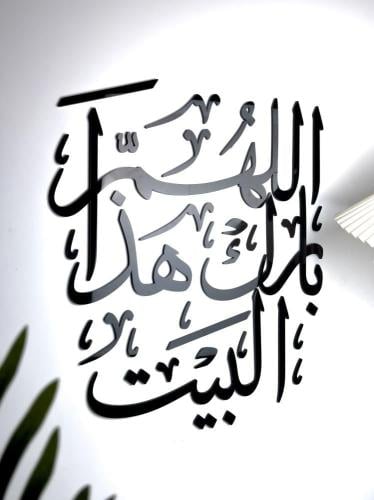 اللهُمَّ
بارك هذا
البَيْت